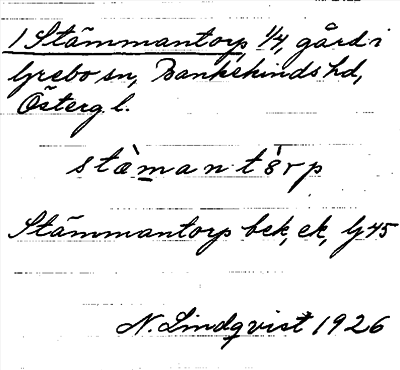 1 Stämmantorp, 1/4, gård i
Grebo sn, Bankekinds hd,
Österg. l.
stæ̀mantòrp
Stämmantorp bek, ek, G 45
N. Lindqvist 1926